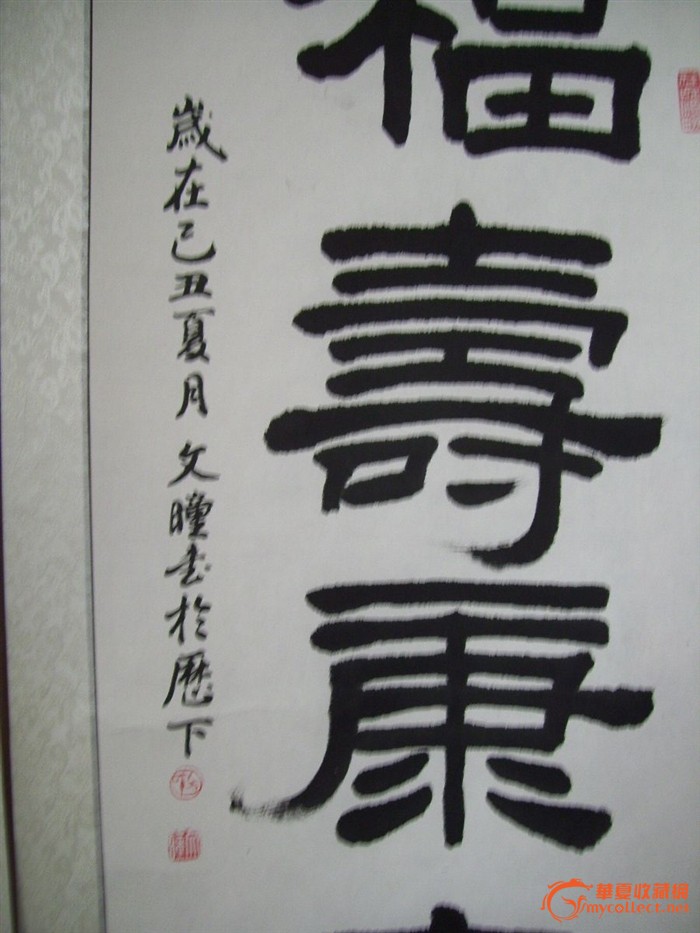 福壽康
歲在己丑夏月文瞳书於歷下
華夏收藏網
mycollect.net